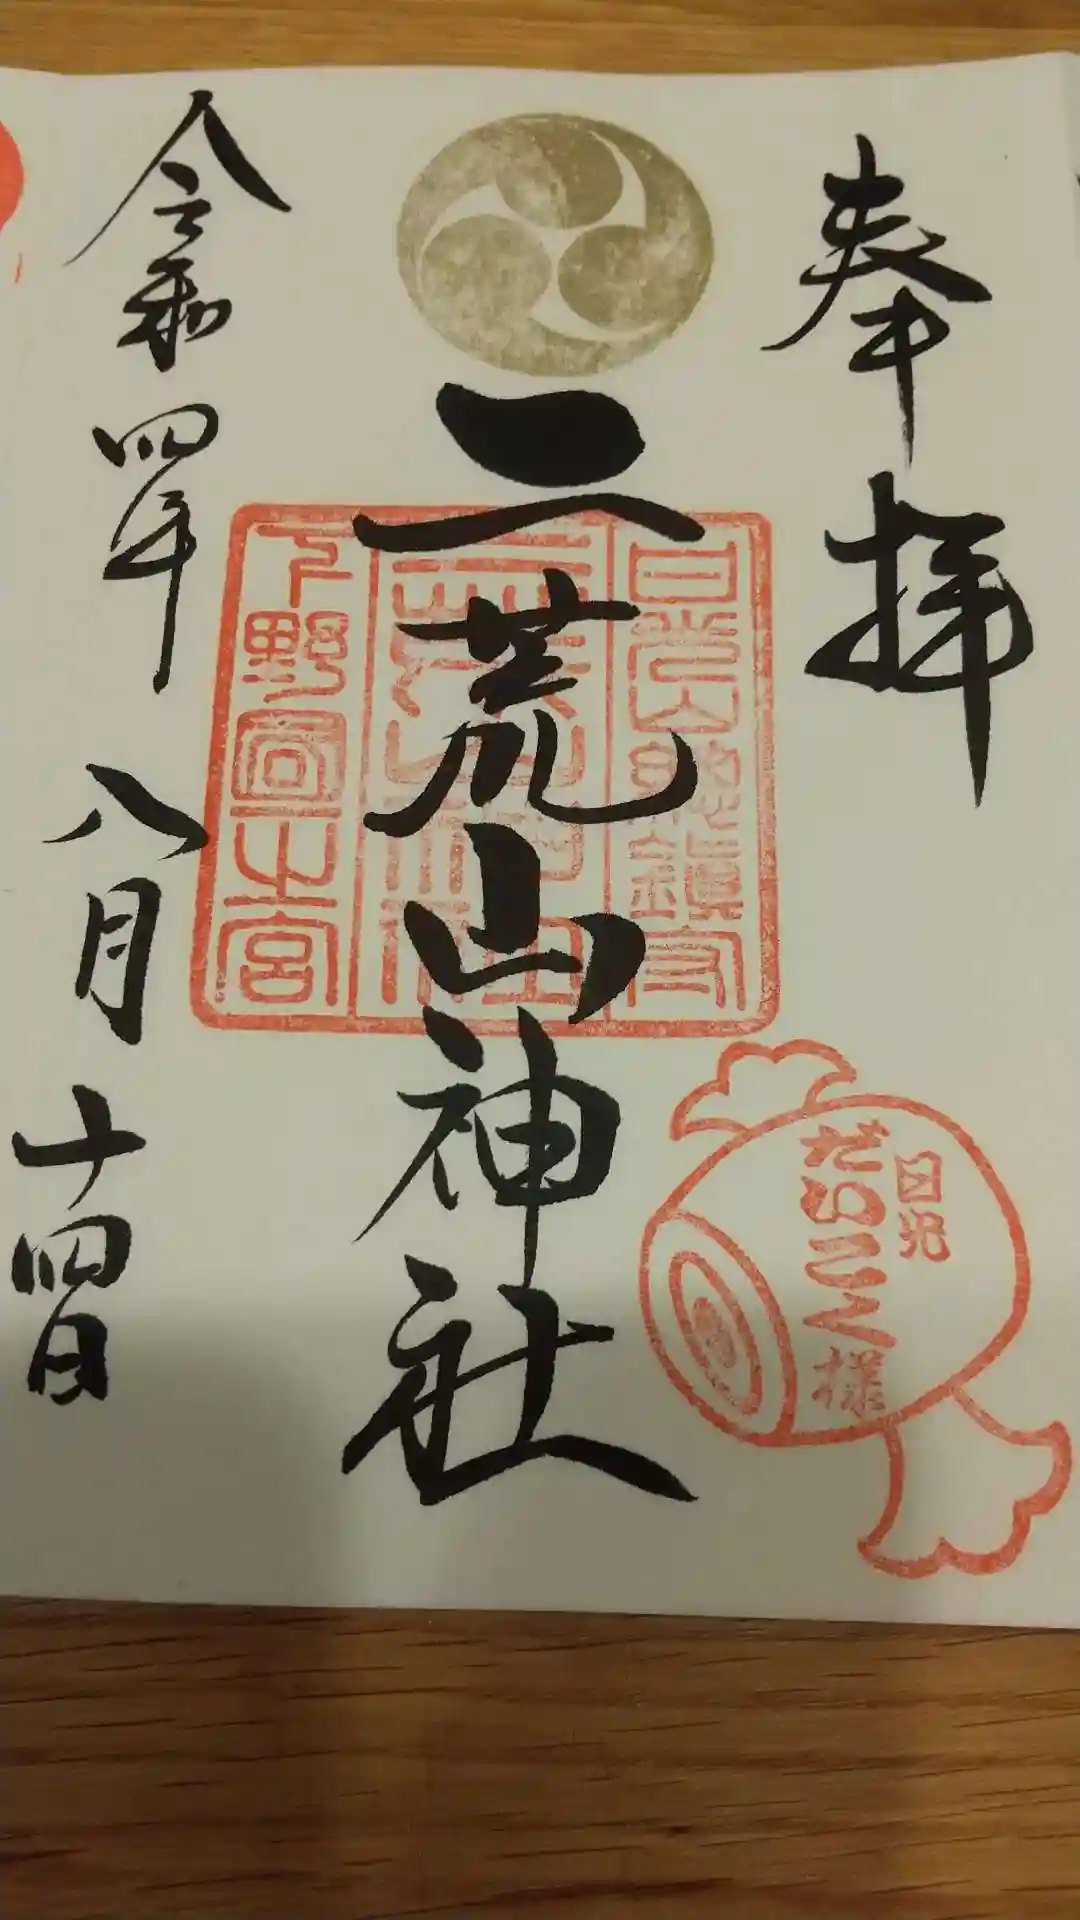 奉拝
日光山総鎮守
二荒山神社
二荒山神社
下野国一之宮
令和四年八月十四日
日光
だいこく様